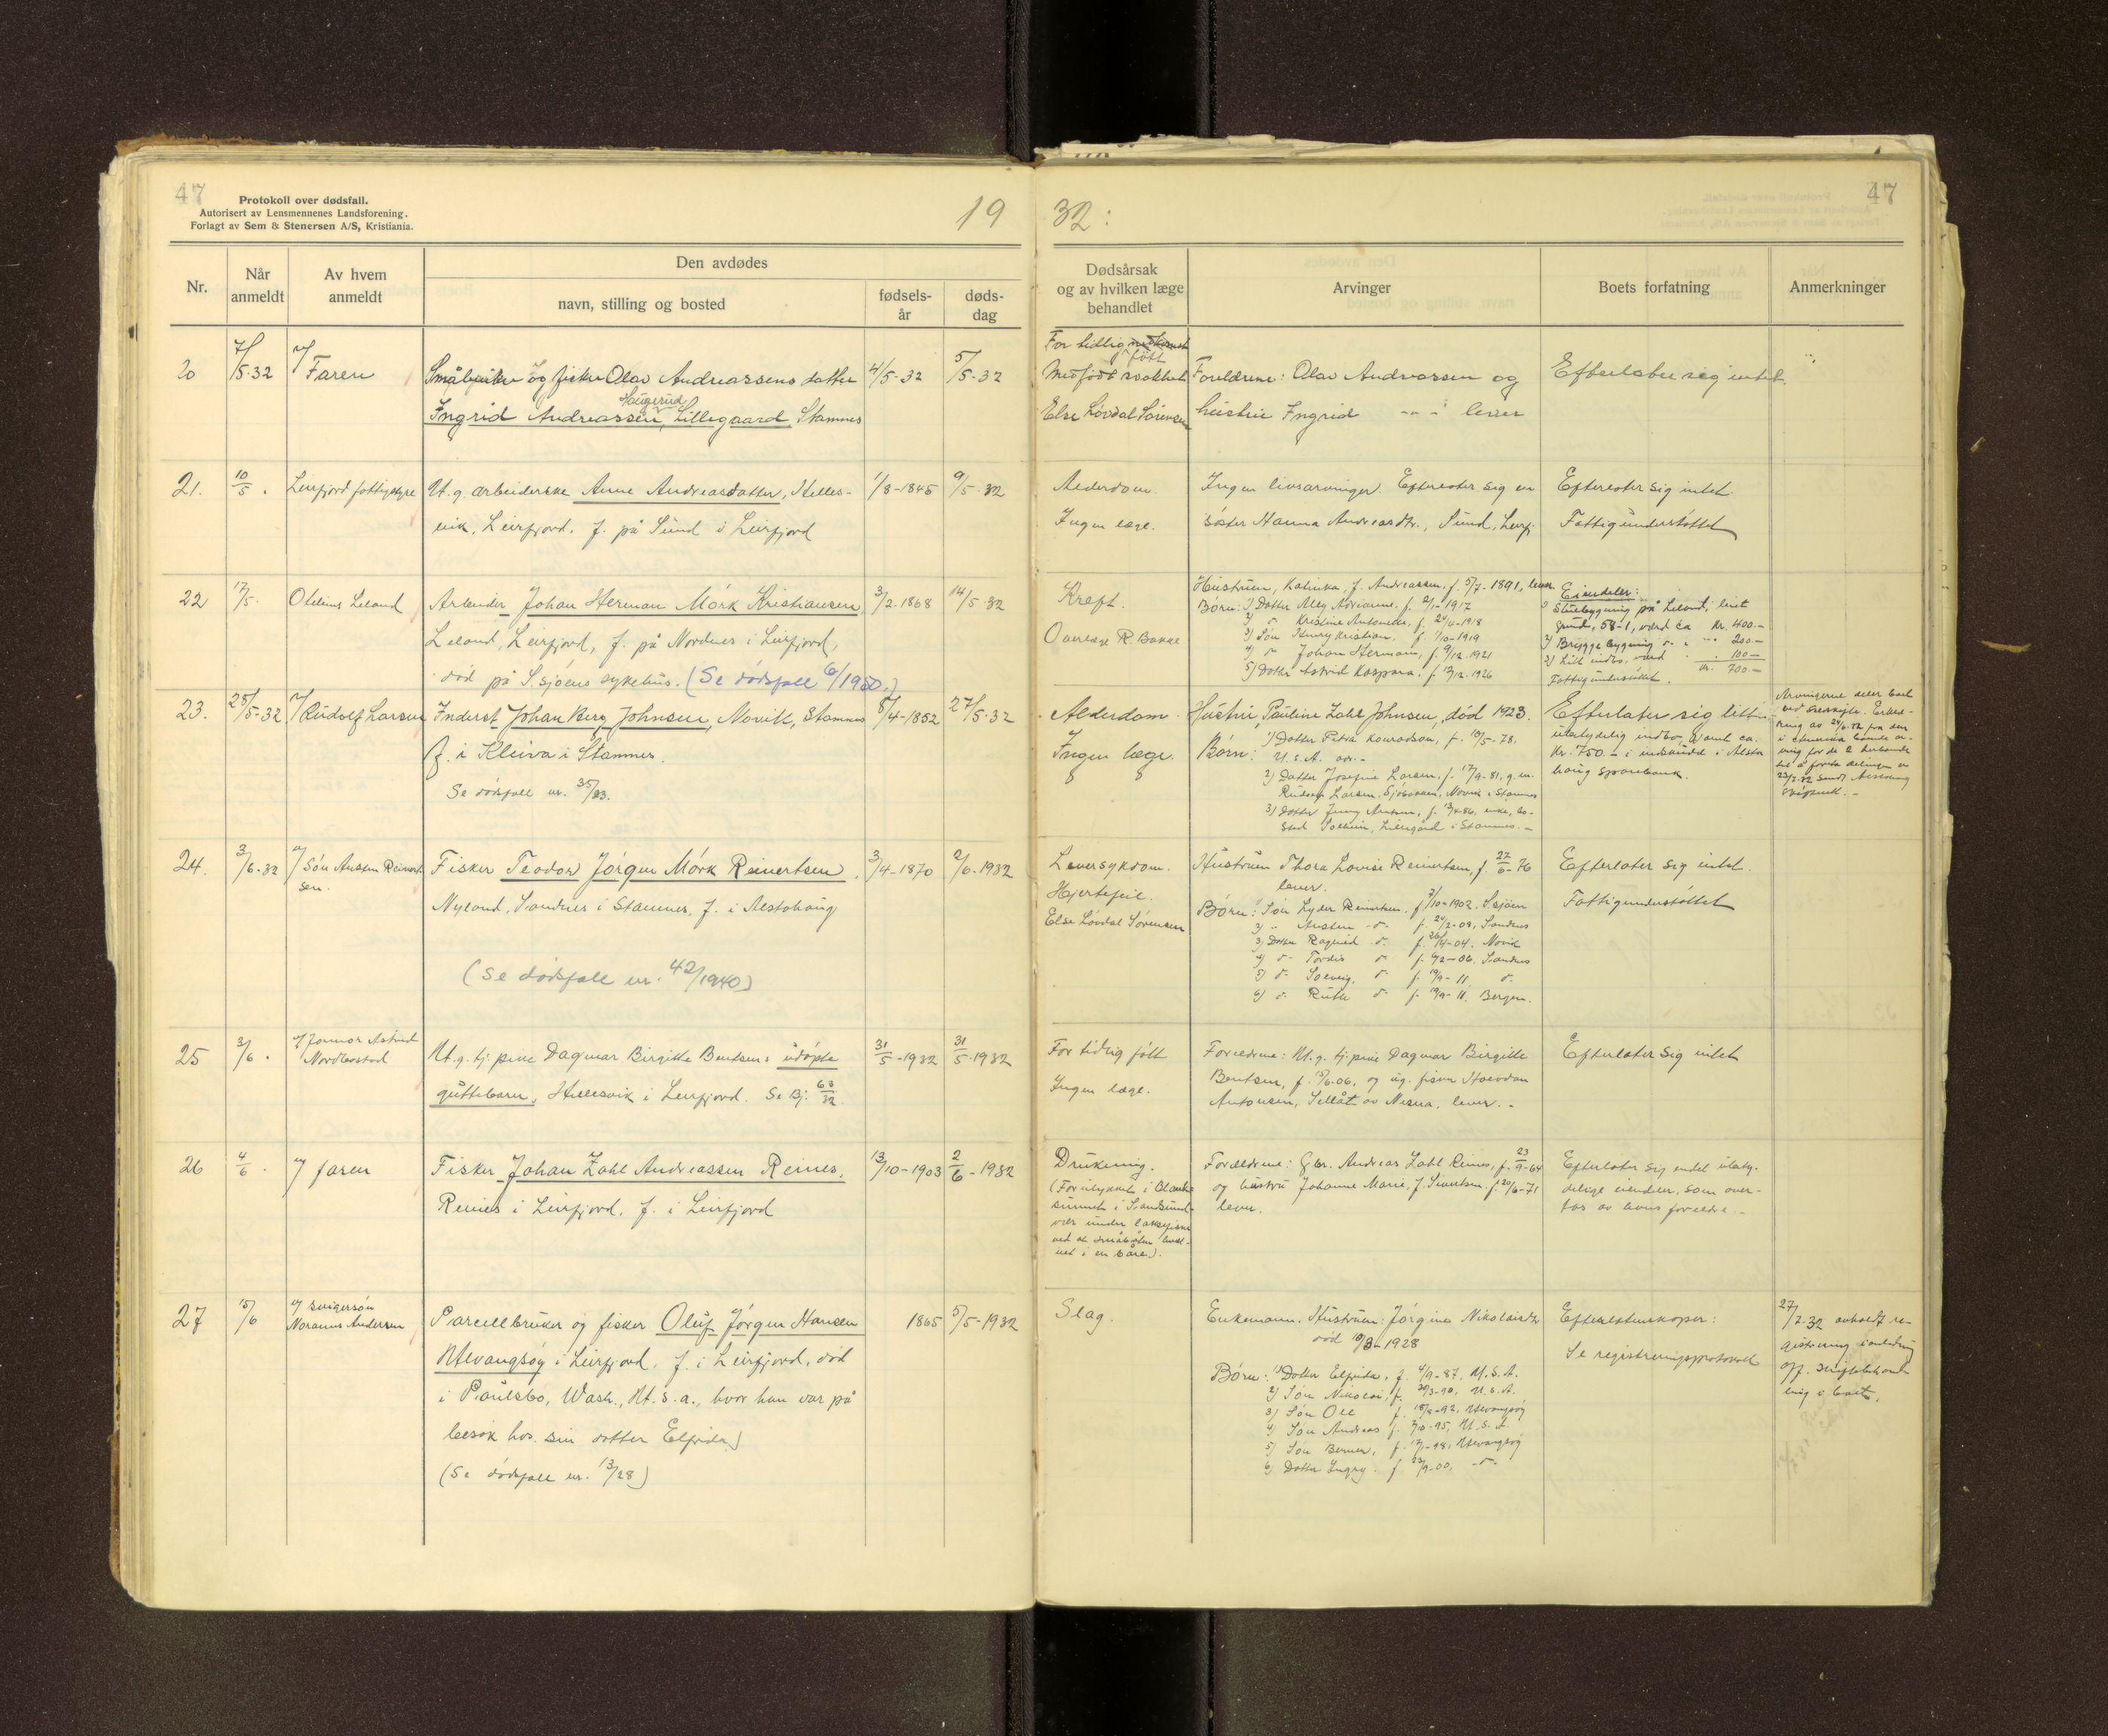 47
Protokoll over dødsfall.
Autorisert av Lensmennenes Landsforening.
Forlagt av Sem & Stenersen A/S, Kristiania.
19
32:
47
Nr.
Når anmeldt
Av hvem anmeldt
Den avdødes
navn, stilling og bosted
fødsels-år
døds-dag
Dødsårsak
og av hvilken læge
behandlet
Arvinger
Boets forfatning
Anmerkninger
20
7/5-32
Faren
Småbruker og fisker Olav Andreassens datter
Haugerud
Ingrid Andreassen, Lillegaard, Stamnes
4/5-32
5/5-32
For tidlig
født
Medfødt svakhet
Else Løvdal Sørensen
Foreldrene: Olav Andreassen og
hustru Ingrid -"- lever
Efterlater sig intet.
21.
10/5.
Leirfjord fattigstyre
U.g. arbeiderske Anne Andreasdatter, Helles-
vik, Leirfjord. f. på Sund i Leirfjord
1/8-1845
9/5-32
Alderdom.
Ingen læge.
Ingen livsarvinger. Efterlater sig en
søster Hanna Andreasdtr., Sund, Leirfj.
Efterlater sig intet.
Fattigunderstøttet
22
17/5.
Otelius Leland
Arbeider Johan Herman Mørk Kristiansen,
Leland, Leirfjord, f. på Nordnes i Leirfjord,
død på S.sjøens sykehus. (Se dødsfall 6/1950.)
3/2-1868
14/5-32
Kreft.
Overlæge R. Bakke
Hustruen, Katinka, f. Andreassen, f. 5/7-1891, lever
Børn: 1) Datter Aleg Adrianne. f. 2/1-1917
2) d- Kristine Antonette, f. 24/4-1918
3) Søn Henry Kristian. f. 1/10-1919
4) d- Johan Herman, f. 9/12-1921
5) Datter Astrid Kaspara. f. 13/12-1926
Eiendeler:
1) Stuebygning på Leland, leiet
grund, 58-1, verd ca kr. 400.-
2) Bryggebygning d- " -"- 200.-
3) Litt indbo, verd " 100.-
kr. 700.-
Fattigunderstøttet.
23.
28/5-32
Rudolf Larsen
Inderst Johan Berg Johnsen, Novik, Stamnes
f. i Kleiva i Stamnes.
Se dødsfall nr. 35/23.
8/4-1852
27/5-32
Alderdom
Ingen læge.
Hustru, Pauline Zahl Johnsen, død 1923.
Børn: 1) Datter Petra Konradson, f. 10/5-78.
U.S.A.
2) Datter Josefine Larsen. f. 17/9-81, g.m.
Rudolf Larsen, Sjøbakken, Novik i Stamnes
3) Datter Jenny Antonsen, f. 13/4-86, enke, bo-
sted Solheim, Lillegård i Stamnes.-
Efterlater sig litt
ubetydelig indbo, samt ca.
kr. 750.- i indskudd i Alsta-
haug sparebank.
Arvingerne deler boet
24.
3/6-32
Søn Austen Reinert-
sen.
Fisker Teodor Jørgen Mørk Reinertsen.
Nyland, Sandnes i Stamnes, f. i Alstahaug
(Se dødsfall nr. 42/1940)
3/4-1870
2/6-1932
Leversykdom.
Hjertefeil.
Else Løvdal Sørensen
Hustruen Thora Lovise Reinertsen, f. 27/6-76
lever.
Børn: Søn Lyder Reinertsen. f. 7/10-1902. S.sjøen
2) " Austen -d- f. 24/2-09, Sandnes
3) Datter Ragnhild d- f. 26/4-04. Novik
4) d- Tordis d- f. 6/2-06. Sandnes
5) d- Solveig. d- f. 19/9-11 d-
6) d- Ruth d- f. 19/9-11. Bergen.
Efterlater sig intet.
Fattigunderstøttet
25
3/6.
Jormor Astrid
Nordbostad
U.g. tj.pike Dagmar Birgitte Bentsens udøpte
guttebarn, Hellesvik i Leirfjord. Se Bj. 63/32
31/5-1932
31/5-1932
For tidlig født
Ingen læge.
Forældrene: U.g. tj.pike Dagmar Birgitte
Bentsen, f. 15/6.06, og ug. fisker Halvdan
Antonsen, Sellåt av Nesna, lever.-
Efterlater sig intet
26
4/6.
faren
Fisker Johan Zahl Andreassen Reines,
Reines i Leirfjord. f. i Leirfjord
13/10-1903
2/6-1932
Drukning.
Forældrene: Gbr. Andreas Zahl Reines, f. 23/9-64
og hustru Johanne Marie, f. Sivertsen. f. 20/6-71
lever.
Efterlater sig endel ubety-
delige eiendeler, som over-
tas av hans forældre.-
27
15/6
svigersøn
Noranus Andersen
Parcellbruker og fisker Oluf Jørgen Hansen
Ulvangsøy i Leirfjord, f. i Leirfjord, død
i Poulsbo, Wash., U.s.a., hvor han var på
besøk hos sin datter Elfrida)
(Se dødsfall nr. 13/28)
1865
5/5-1932
Slag.
Enkemann. Hustruen: Jørgine Nikolaisdtr
død 10/3-1928
Børn: 1) Datter Elfrida, f. 4/9-87. U.S.A.
2) Søn Nikolai, f. 20/3-90, U.S.A.
3) Søn Ole f. 15/4-92, Ulvangsøy
4) Søn Andreas f. 7/10-95, U.S.A.
5) Søn Berner, f. 12/1-98, Ulvangsøy
6) Datter Inga f. 23/9-00, -d-
Efterlatenskaper:
Se registreringsprotokoll
27/7.32 avholdt re-
gistrering i anledning
off. skiftebehand-
ling i boet.